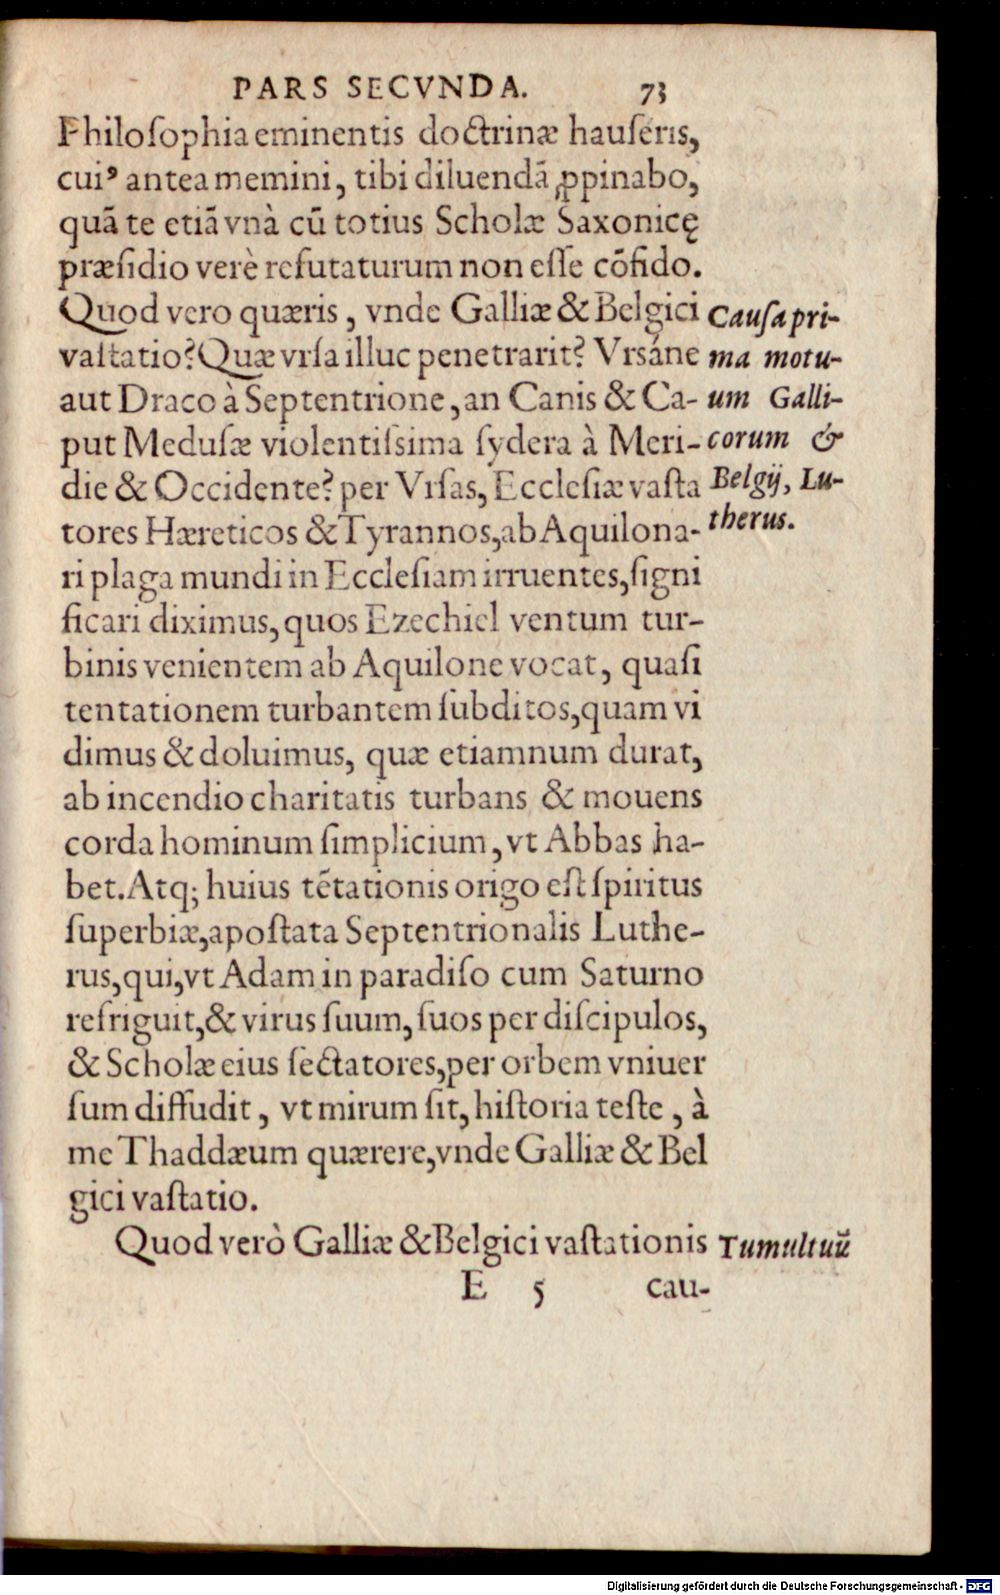 PARS SECVNDA. 73
Philoſophia eminentis doctrinæ hauſeris,
cuiꝰ antea memini, tibi diluendā ꝓpinabo,
quā te etiā vnà cū totius Scholæ Saxonicę
præſidio verè refutaturum non eſſe cōfido.
Quod vero quæris, vnde Galliæ & Belgici
vaſtatio? Quæ vrſa illuc penetrarit? Vrſáne
aut Draco à Septentrione, an Canis & Ca-
put Meduſæ violentiſsima ſydera à Meri-
die & Occidente? per Vrſas, Eccleſiæ vaſta
tores Hæreticos & Tyrannos, ab Aquilona-
ri plaga mundi in Eccleſiam irruentes, ſigni
ficari diximus, quos Ezechiel ventum tur-
binis venientem ab Aquilone vocat, quaſi
tentationem turbantem ſubditos, quam vi
dimus & doluimus, quæ etiamnum durat,
ab incendio charitatis turbans & mouens
corda hominum ſimplicium, vt Abbas ha-
bet. Atq; huius tētationis origo eſt ſpiritus
ſuperbiæ, apoſtata Septentrionalis Luthe-
rus, qui, vt Adam in paradiſo cum Saturno
refriguit, & virus ſuum, ſuos per diſcipulos,
& Scholæ eius ſectatores, per orbem vniuer
ſum diffudit, vt mirum ſit, hiſtoria teſte, à
me Thaddæum quærere, vnde Galliæ & Bel
gici vaſtatio.
Quod verò Galliæ & Belgici vaſtationis
E 5 cau-
Cauſa pri-
ma motu-
um Galli-
corum &
Belgij, Lu-
therus.
Tumultuū
Digitalisierung gefördert durch die Deutsche Forschungsgemeinschaft - DFG